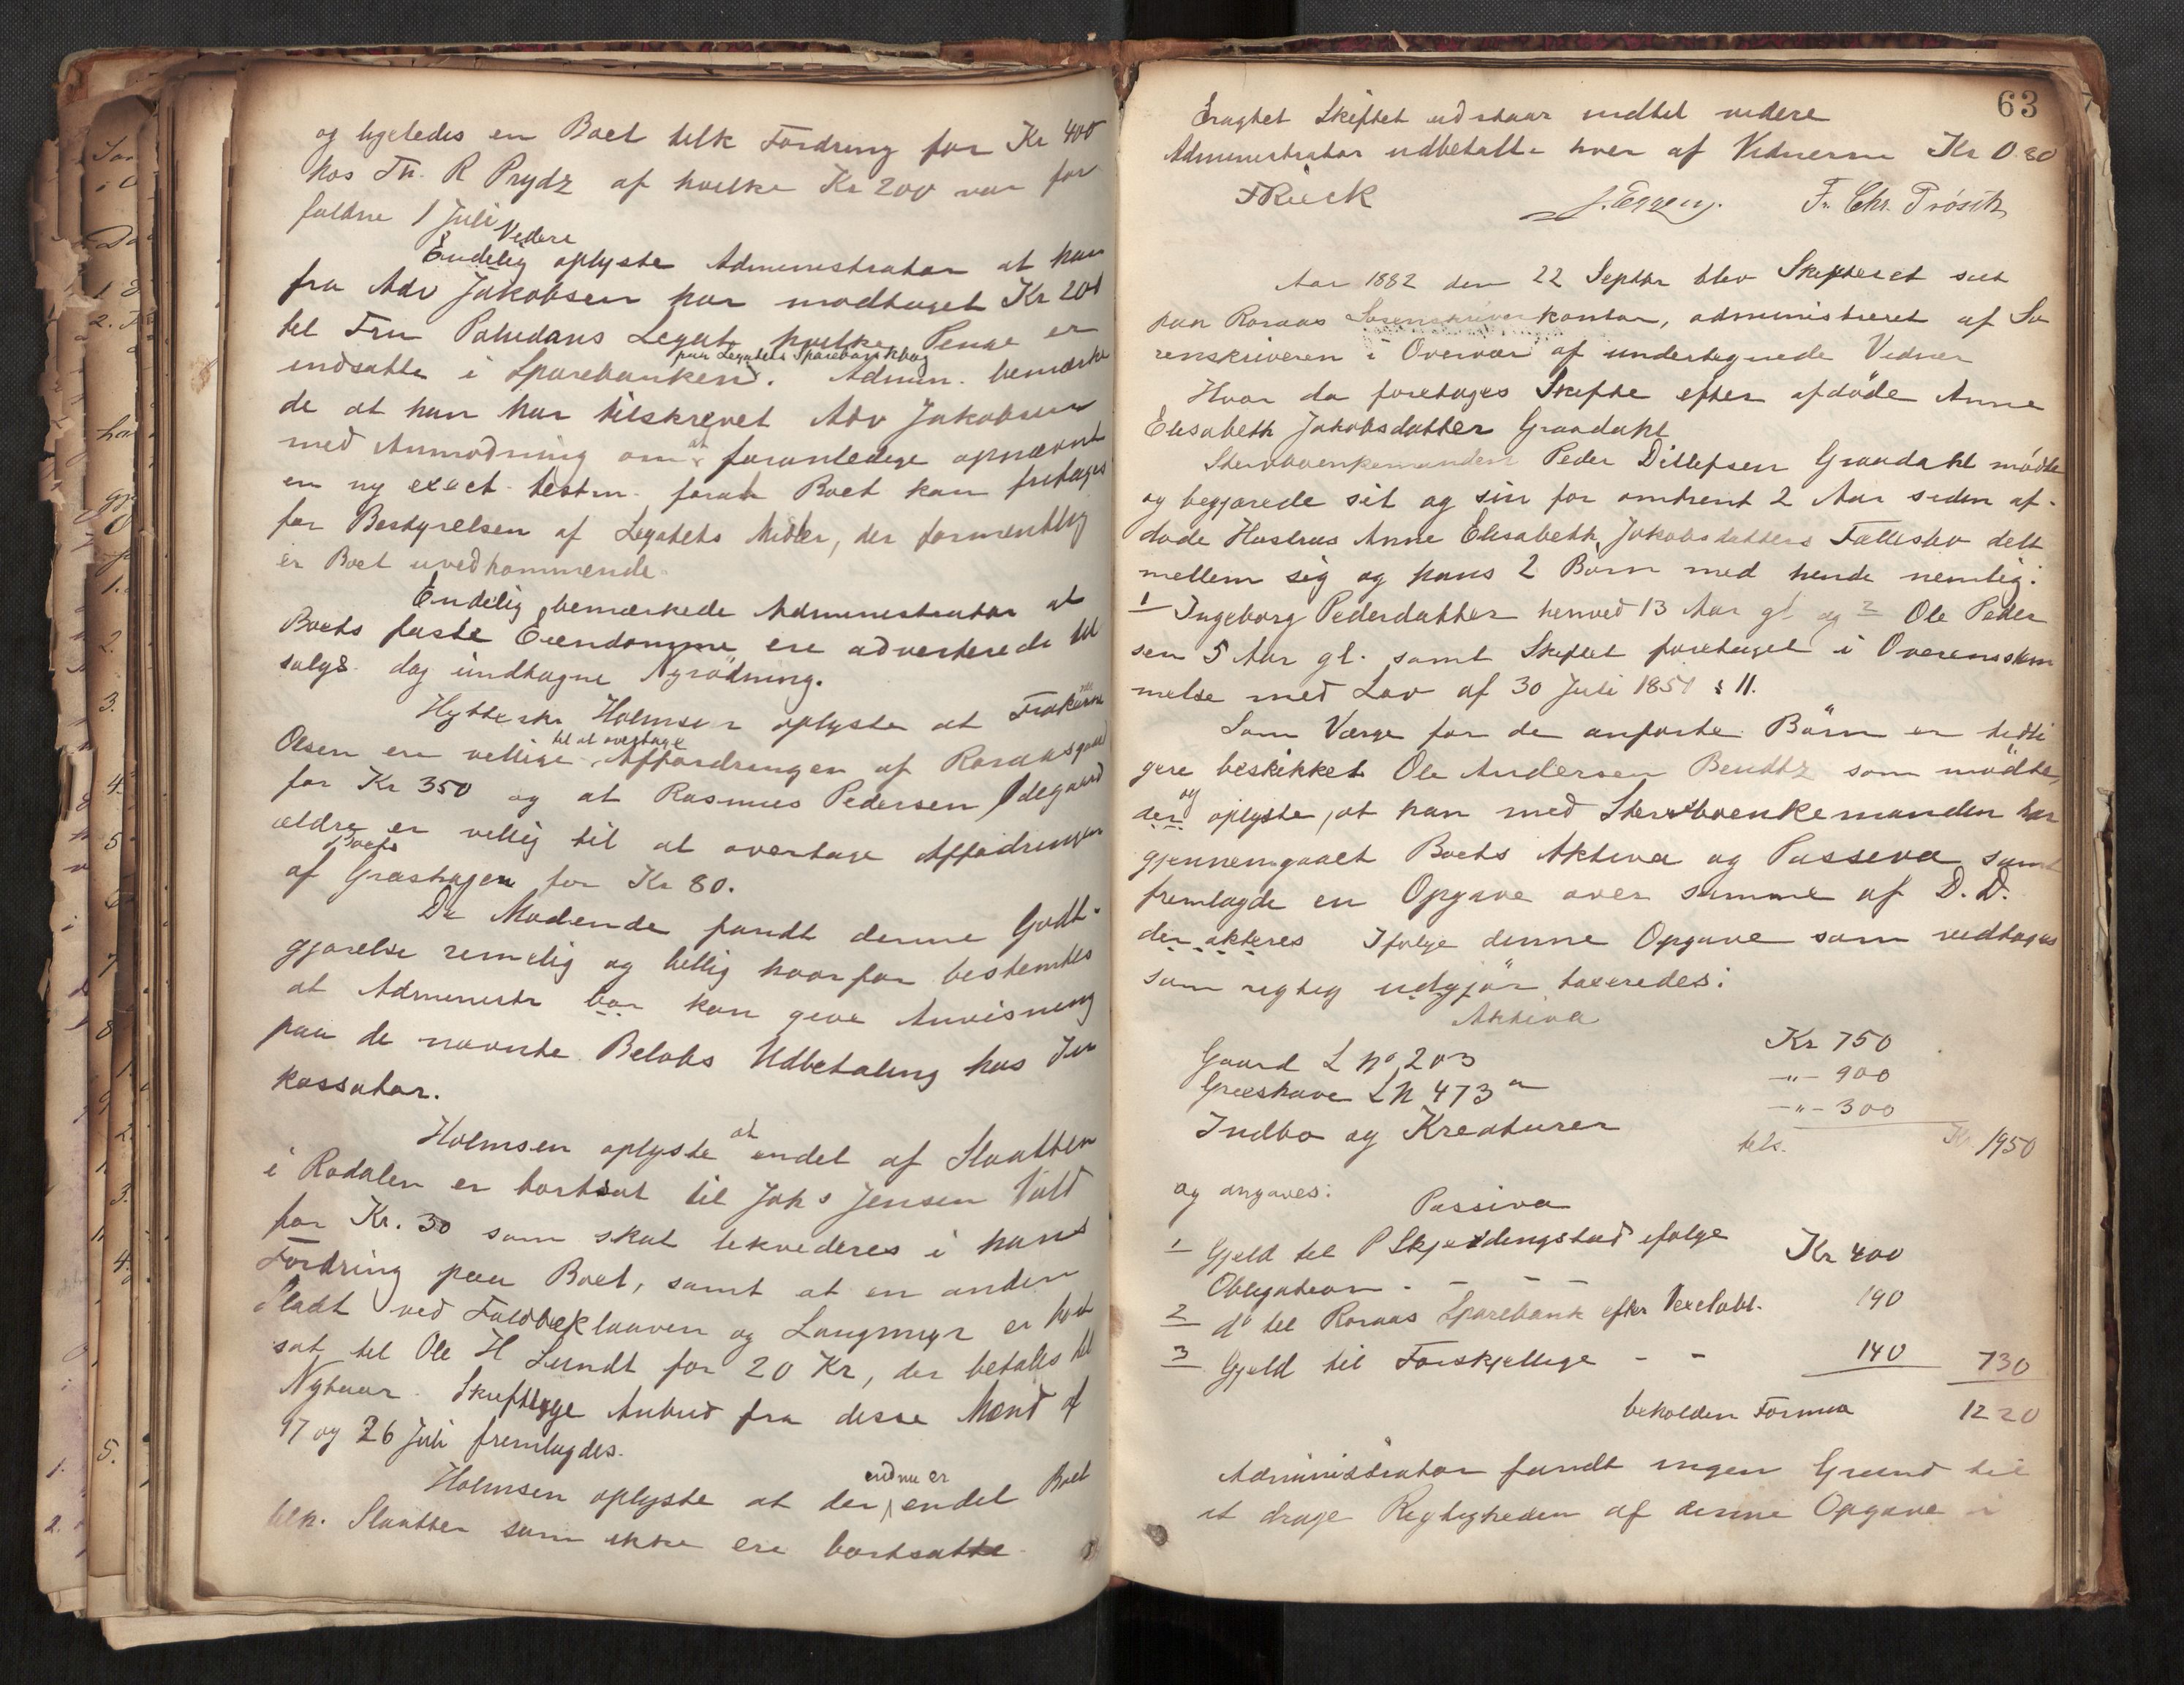 og ligeledes en Boet tilk Fordring for Kr 400
hos Th. R Prydz af hvilke Kr 200 var for
faldne 1 Juli
Videre
Endelig oplyste Administrator at han
fra Adv Jakobsen har modtaget Kr 201
til Fru Paludans Legat, hvilke Penge er
paa Legatets Sparebankbog
indsatte i Sparebanken. Admin. bemærke
de at han har tilskrevet Adv Jakobsen
med Anmodning om at foranledige opnævnt
en ny exect. testm. forat Boet kan fritages
for Bestyrelsen af Legatets Midler, der formentlig
er Boet uvedkommende.
Endelig bemærkede Administrator at
Boets faste Eiendomme ere adverterede til
salgs dog undtagne Nyrödning.
Hytteskr Holmsen oplyste at
til at overtage
Olsen ere villige Affordringen af Roraasgaard
for Kr 350 og at Rasmus Pedersen Ødegaard
ældre er villig til at overtage Affodringen
Boets
af Græshagen for Kr 80.
De Mødende fandt denne Godt-
gjørelse rimelig og billig hvorfor bestemtes
at Administr bør kan give Anvisning
paa de nævnte Beløbs Udbetaling hos In
kassator.
Holmsen oplyste at endel af Slaatten
i Rødalen er bortsat til Johs Jensen Vold
for Kr. 30 som skal likvideres i hans
Fordring paa Boet, samt at en anden
Sladt ved Foldbæklaaven og Langmyr er bort
sat til Ole H Lundt for 20 Kr, der betales til
Nytaar. Skriftlige Anbud fra disse Mænd af
17 og 26 Juli fremlagdes.
endnu er
Holmsen oplyste at der endel Boet
tilh. Slaatter som ikke ere bortsatte
63
Eragtet Skiftet udstaar indtil videre
Administrator udbetalte hver af Vidnerne Kr 0.80
FRieck J. Eggen. Fr. Chr. Prøsch
Aar 1882 den 22 Septbr blev Skifteret sat
paa Roraas Sorenskriverkontor, administreret af So
renskriveren i Overvær af undertegnede Vidner
Hvor da foretoges Skifte efter afdöde Anne
Elisabeth Jakobsdatter Graadahl
Stervboenkemanden Peder Ditlefsen Graadahl mödte
og begjærede sit og sin for omtrent 2 Aar siden af-
døde Hustrus Anne Elisabeth Jakobsdatters Fællesbo delt
mellem sig og hans 2 Børn med hende nemlig:
1 Ingeborg Pedersdatter henved 13 Aar gl. og 2 Ole Peder
sen 5 Aar gl. samt Skiftet foretaget i Overensstem
melse med Lov af 30 Juli 1851 § 11.
Som Værge for de anførte Börn er tidli
gere beskikket Ole Andersen Bendtz som mödte,
og
der oplyste, at han med Stervboenkemanden har
gjennemgaaet Boets Aktiva og Passiva samt
fremlagde en Opgave over samme af D. D.
der akteres Ifølge denne Opgave som vedtoges
som rigtig udgjör taxeredes:
Aktiva
Gaard L No 203 Kr 750
Græshave LN 473 a -"- 900
Indbo og Kreaturer -"- 300
tils. Kr 1950
og angaves:
Passiva
1 Gjeld til P Skjeldengstad ifølge
Obligation - - - Kr 400
2 do til Roraas Sparebank efter Vexelobl. 190
3 Gjeld til Forskjellige - - 140 730
beholden Formue 1220
Administrator fandt ingen Grund til
at drage Rigtigheden af denne Opgave i